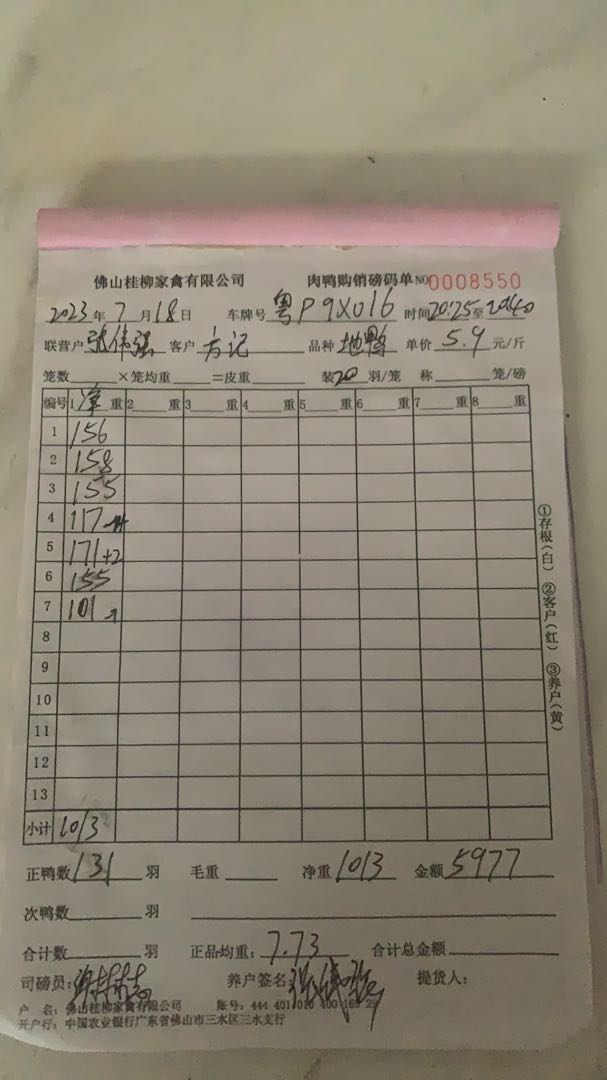 佛山桂柳家禽有限公司 肉鸭购销磅码单 NO 0008550
2023年7月18日 车牌号 粤P9X016 时间 20:25至20:40
联营户 张伟强 客户 方记 品种 地鸭 单价 5.9 元/斤
笼数 ×笼均重 =皮重 装20羽/笼 称 笼/磅
编号 1净重 2 重 3 重 4 重 5 重 6 重 7 重 8 重
1 156
2 158
3 155
4 117
5 171+2
6 155
7 101
8
9
10
11
12
13
小计 1013
正鸭数 131 羽 毛重 净重 1013 金额 5977
次鸭数 羽
合计数 羽 正品均重: 7.73 合计总金额
司磅员: 养户签名 提货人:
户 名: 佛山桂柳家禽有限公司 账号: 444 401 010 400 169 29
开户行: 中国农业银行广东省佛山市三水区三水支行
①存根(白) ②客户(红) ③养户(黄)